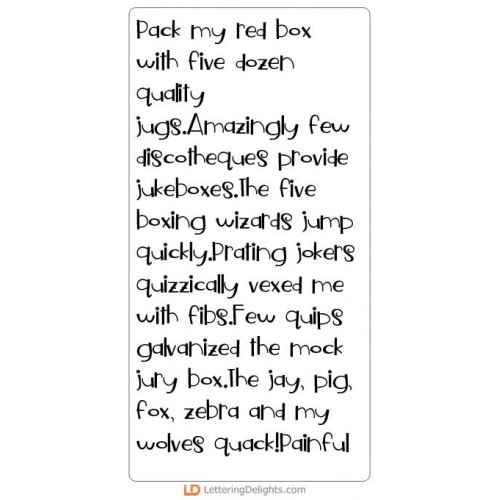 Pack my red box
with five dozen
quality
jugs.Amazingly few
discotheques provide
jukeboxes.The five
boxing wizards jump
quickly.Prating jokers
quizzically vexed me
with fibs.Few quips
galvanized the mock
jury box.The jay, pig,
fox, zebra and my
wolves quack!Painful
LD LetteringDelights.com